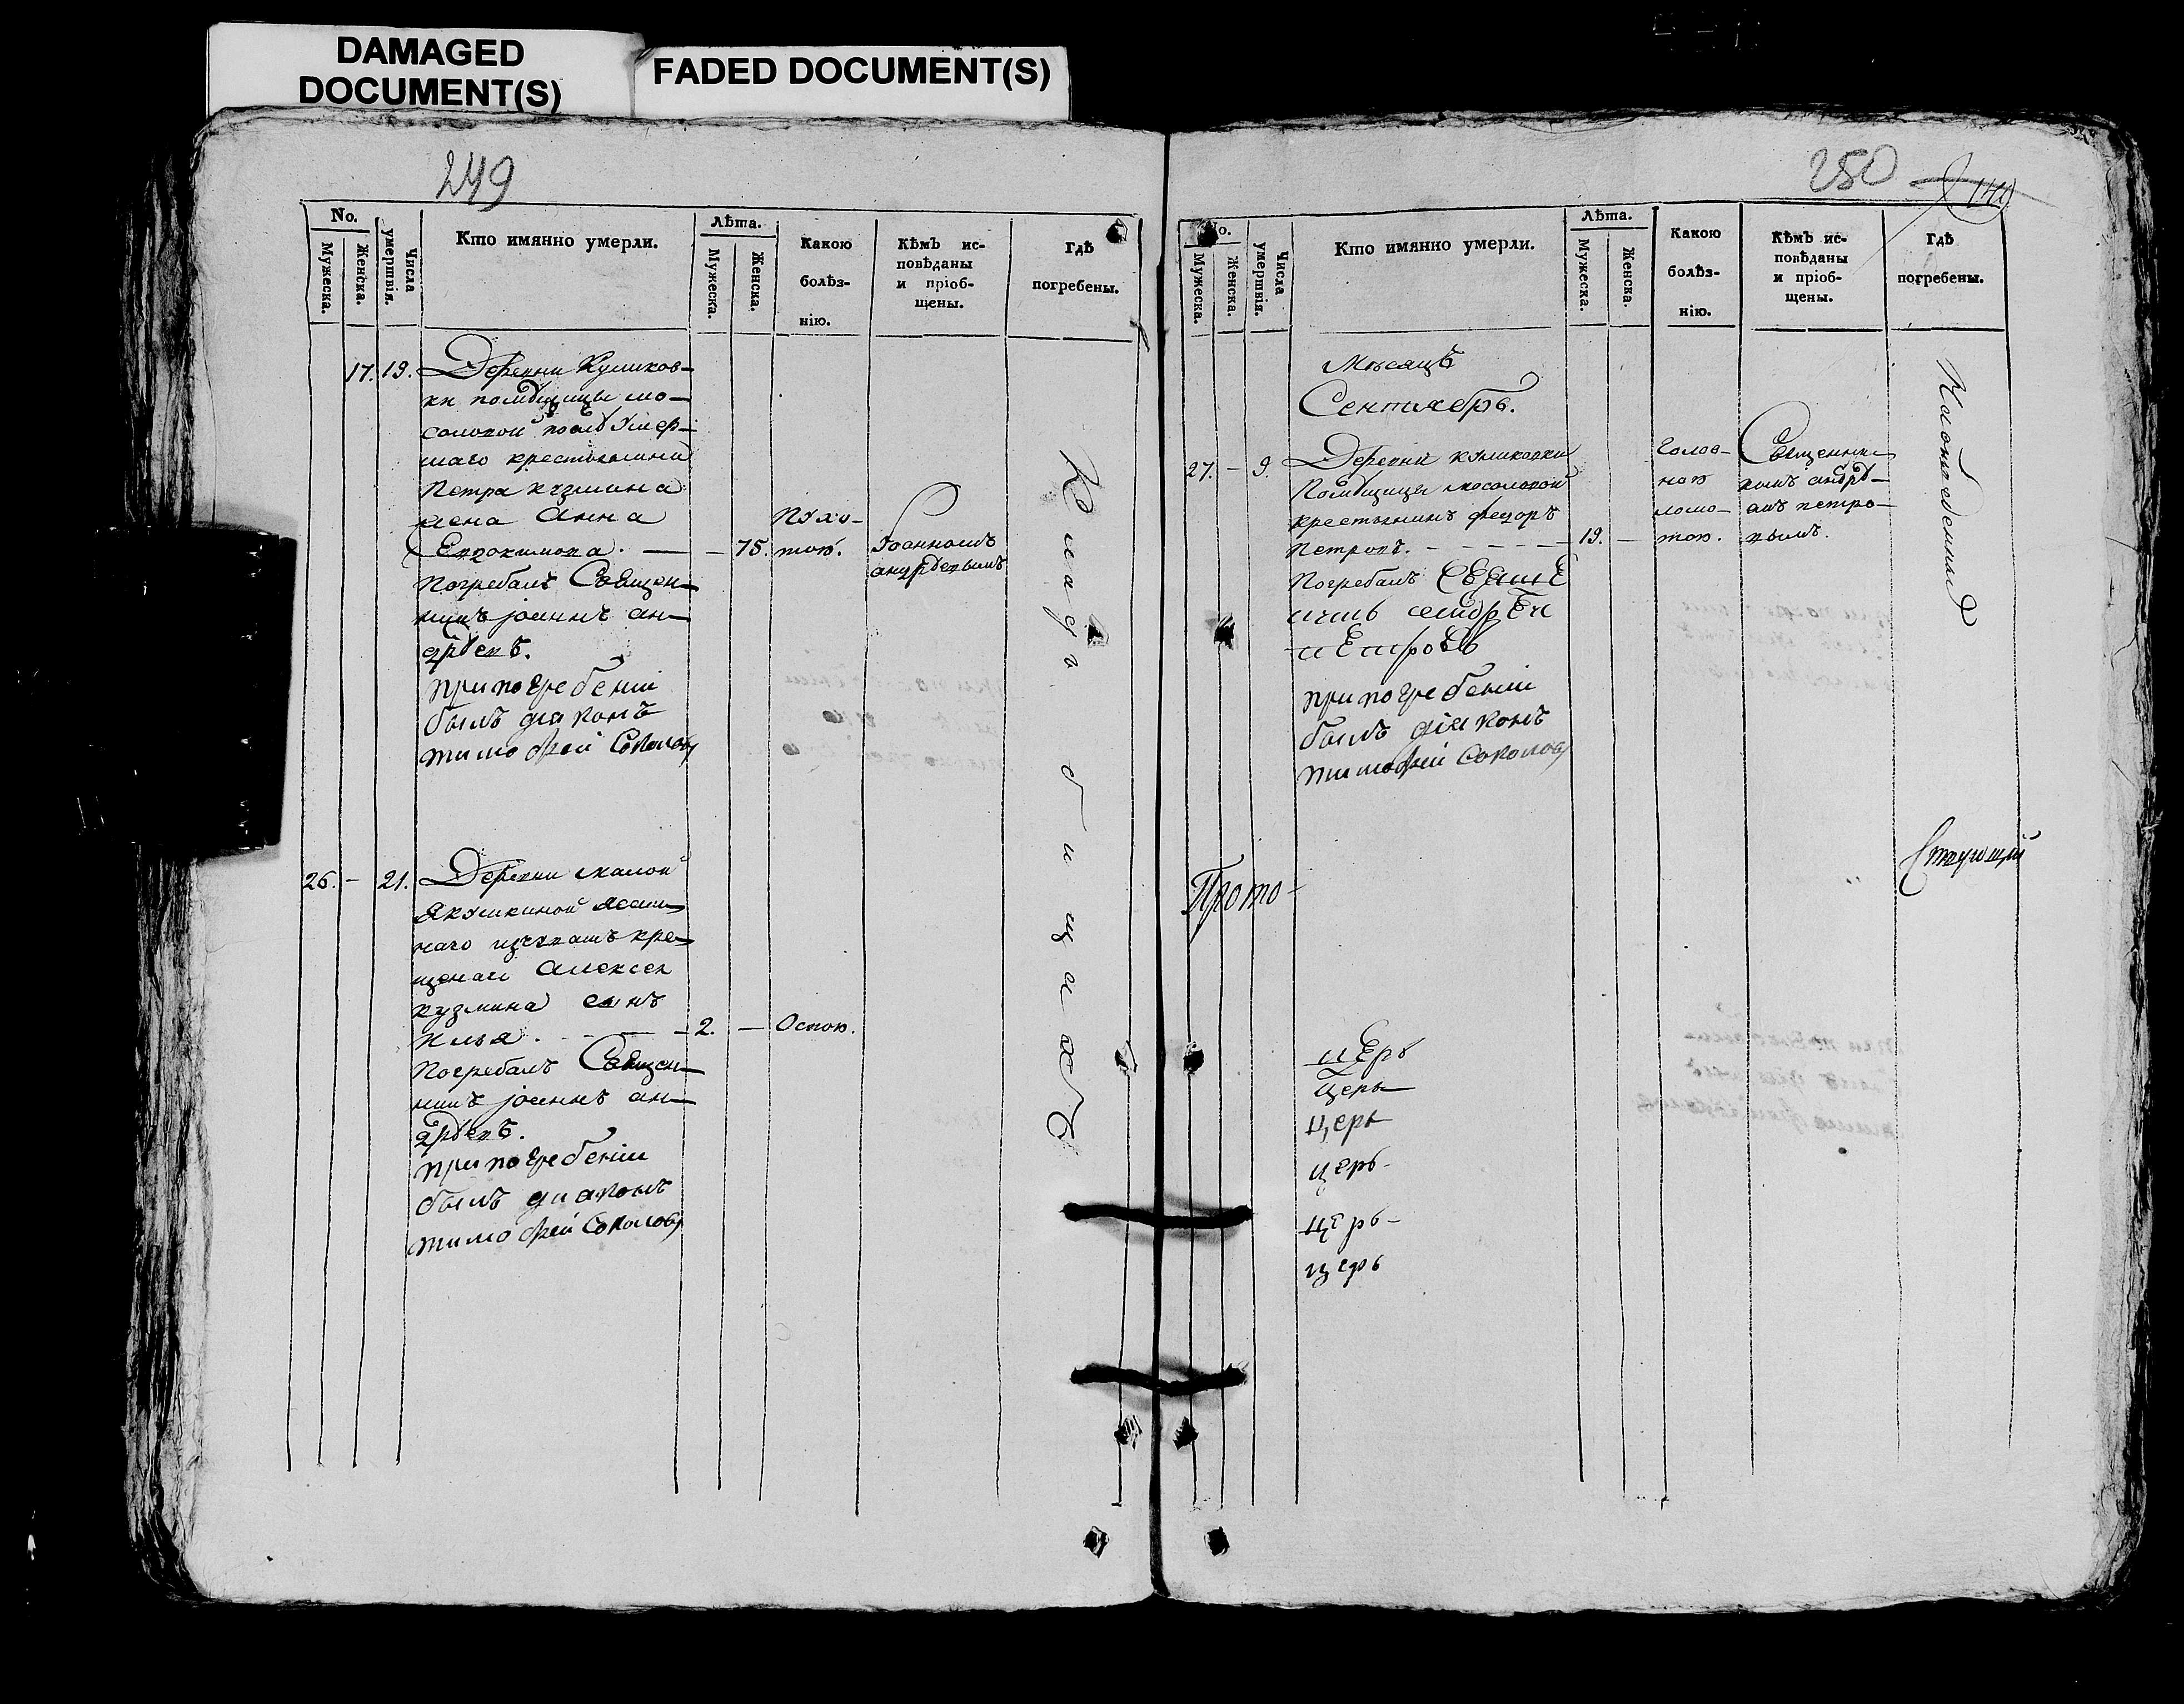 DAMAGED
DOCUMENT(S)
FADED DOCUMENT(S)
249
No.
Мужеска.
Женска.
Числа умертвія.
Кто имянно умерли.
Лѣта.
Мужеска.
Женска.
Какою
болѣз-
нію.
Кѣмъ ис-
повѣданы
и пріоб-
щены.
Гдѣ
погребены.
17. 19. Деревни Куликов-
ки помѣщицы мо-
соловой послѣ умер-
шаго крестьянина
Петра кузмина
жена Анна
Евдокимова. — — 75.
Погребалъ Священ-
никъ јоаннъ ан-
дрѣевъ.
при погребеніи
былъ діаконъ
тимофей Соколовъ
Іоанномъ
андрѣевымъ
26. — 21. Деревни малой
Якушкиной
кре-
щенаго Алексея
кузмина сынъ
Илья. — 2. — Оспою.
Погребалъ Священ-
никъ јоаннъ ан-
дрѣевъ.
при погребеніи
былъ диаконъ
тимофей Соколовъ
кладбищахъ
250
No.
Мужеска.
Женска.
Числа умертвія.
Кто имянно умерли.
Лѣта.
Мужеска.
Женска.
Какою
болѣз-
нію.
Кѣмъ ис-
повѣданы
и пріоб-
щены.
Гдѣ
погребены.
Мѣсяцъ
Сентябрь.
27. — 9. Деревни куликовки
Помѣщицы мосоловой
крестьянинъ федоръ
Петровъ. — 19. —
Погребалъ СвящЕ
никъ андрЕй
пЕтровъ
при погребеніи
былъ діяконъ
тимофей Соколовъ
голов-
ною
ломо-
тою.
Священни-
комъ андрѣ-
емъ петро-
вымъ.
На отведенныя
Прото-
Стоущій
цЕрь
Церь
Церь
церь-
Церь-
церь